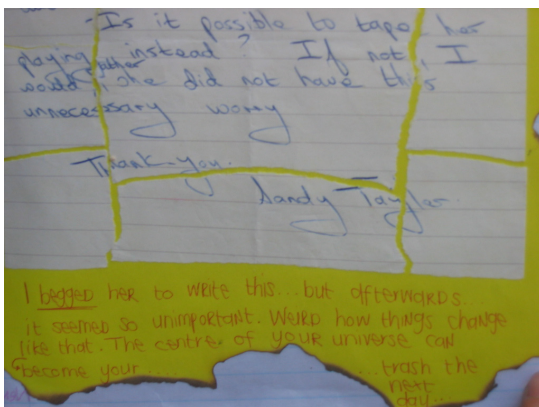 - Is it possible to tape her
playing instead? If not, I
would rather she did not have this
unnecessary worry
Thank-you.
Sandy Taylor
I begged her to write this... but afterwards..
it seemed so unimportant. Weird how things change
like that. The centre of your universe can
become your..... ....trash the
next
day..